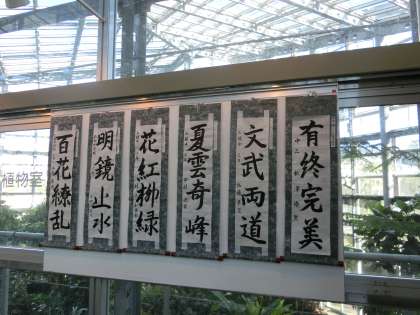 有終完美
文武両道
夏雲奇峰
花紅柳緑
明鏡止水
百花繚乱
植物室